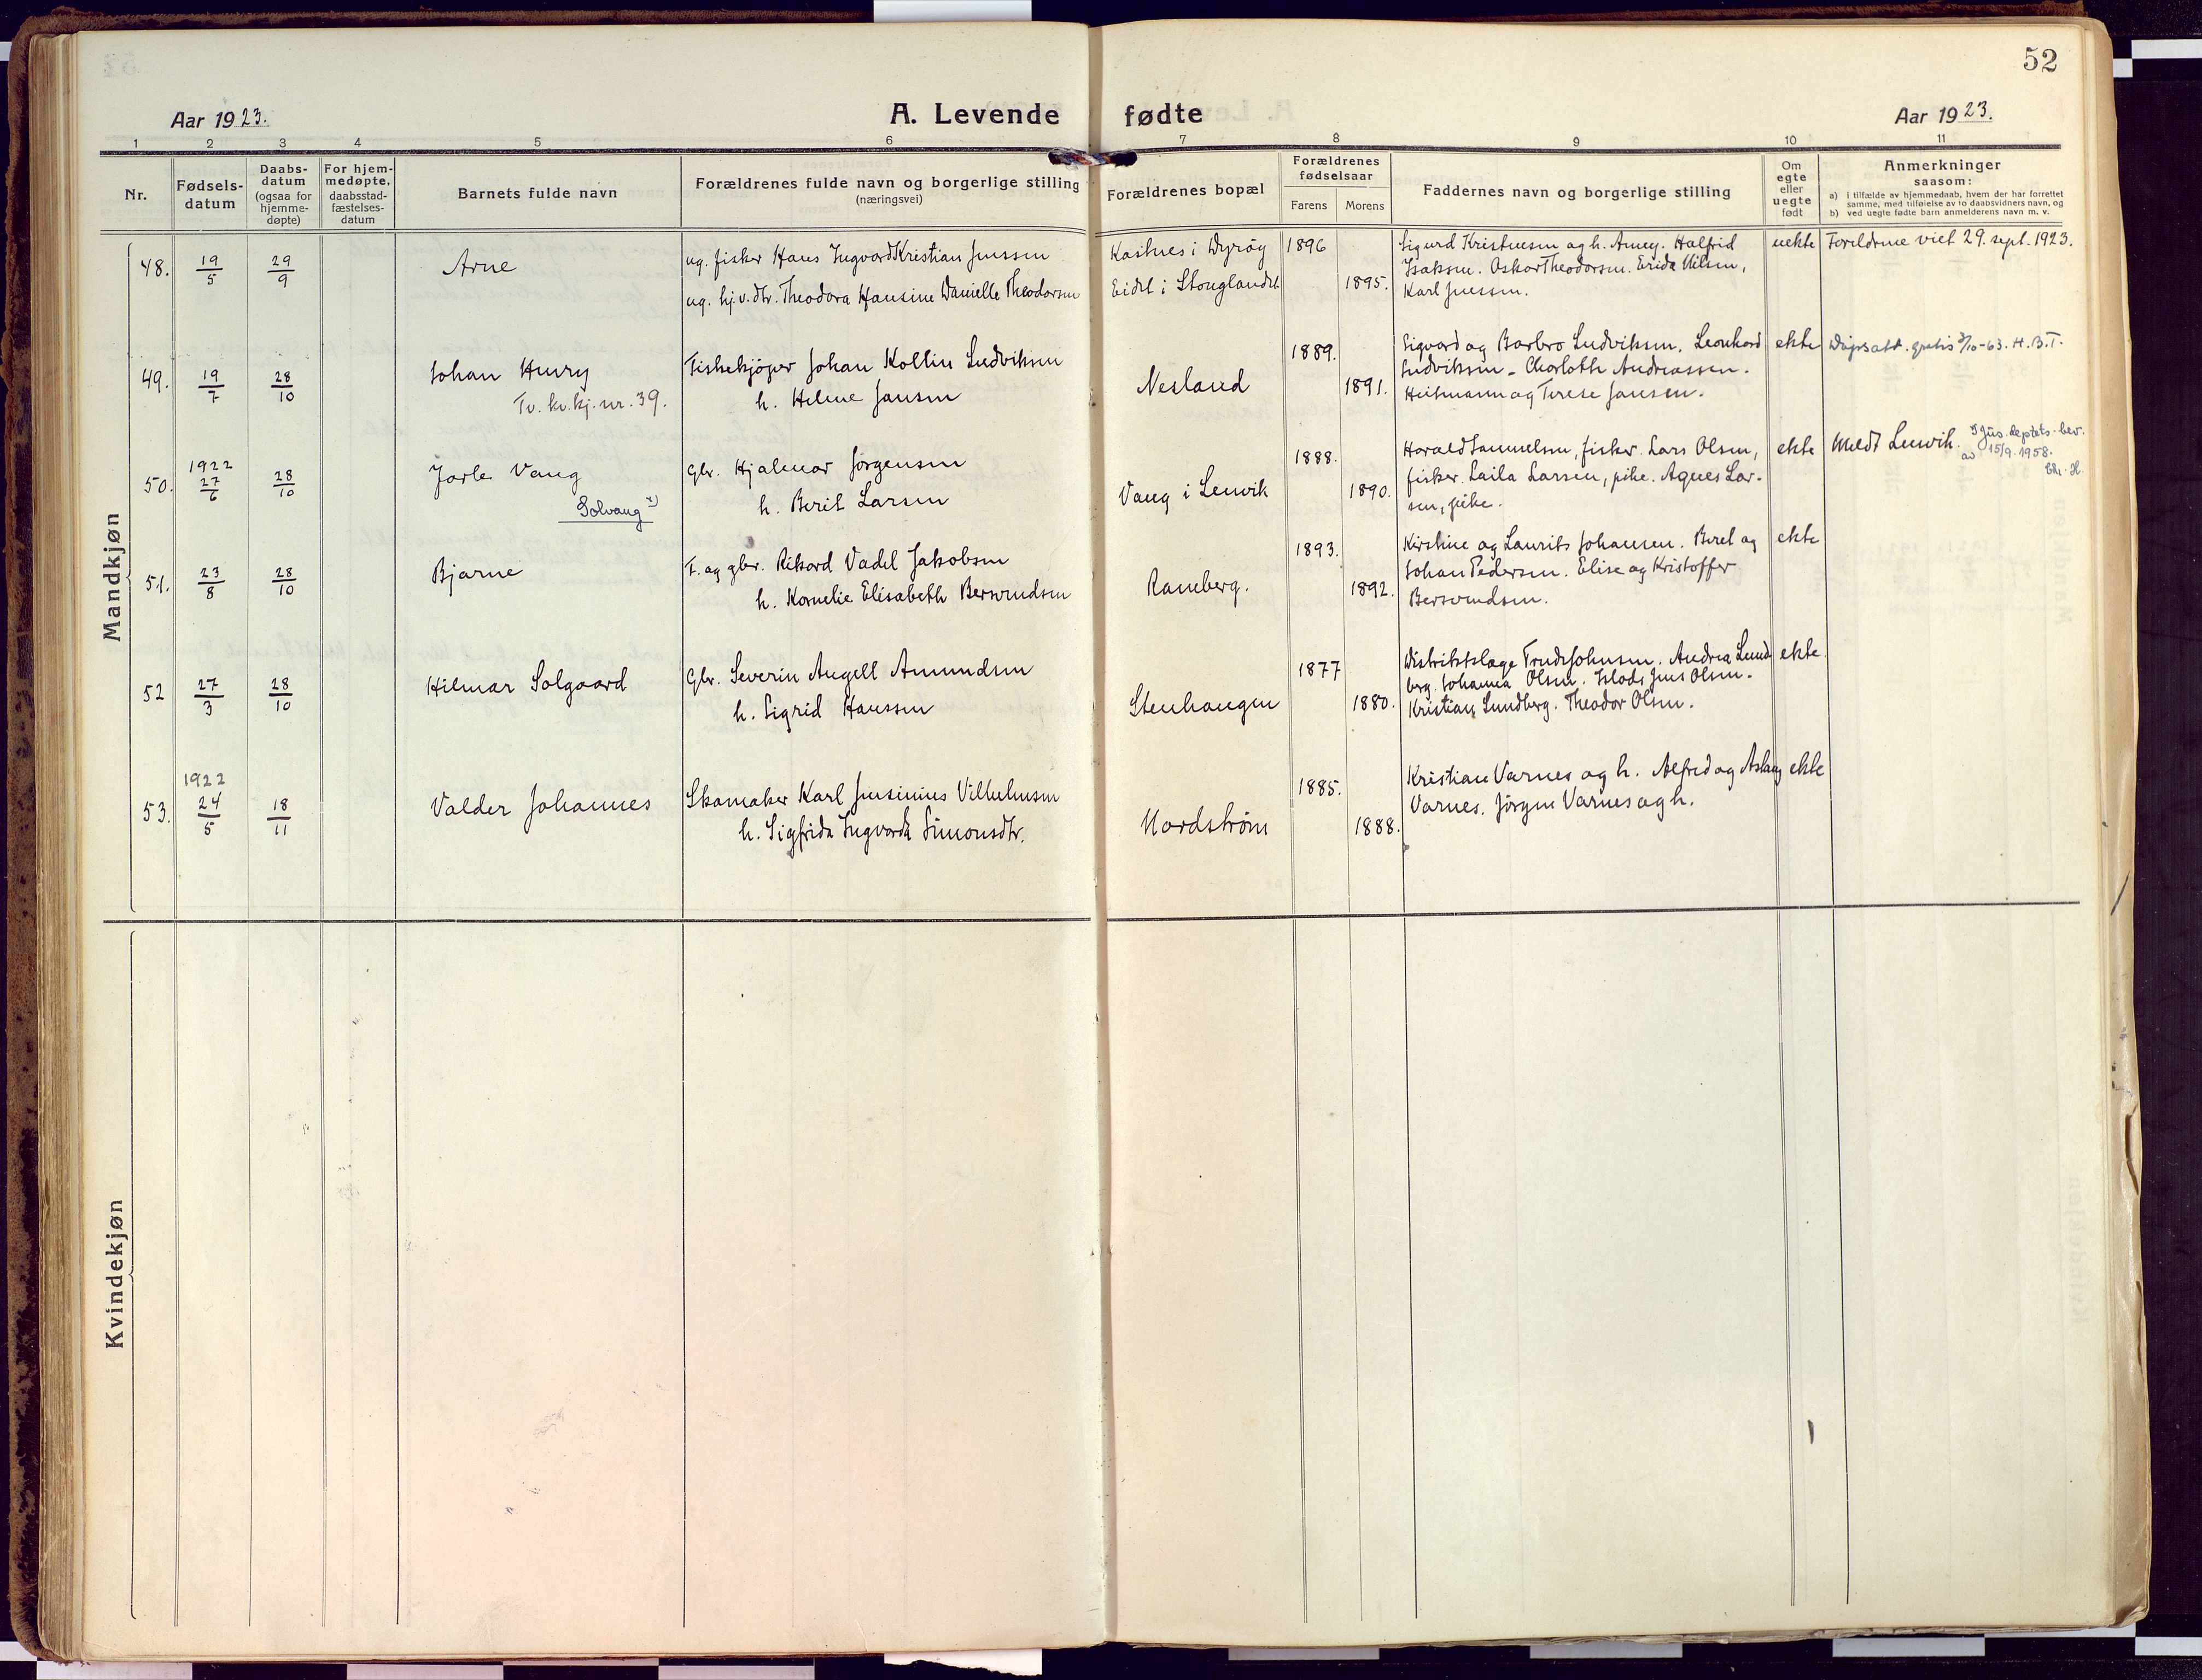 52
Aar 1923.
A. Levende fødte
Aar 1923.
1 2 3 4 5 6 7 8 9 10 11
Nr.
Fødsels-
datum
Daabs-
datum
(ogsaa for
hjemme-
døpte)
For hjem-
medøpte,
daabsstad-
fæstelses-
datum
Barnets fulde navn
Forældrenes fulde navn og borgerlige stilling
(næringsvei)
Forældrenes bopæl
Forældrenes
fødselsaar
Farens
Morens
Faddernes navn og borgerlige stilling
Om
egte
eller
uegte
født
Anmerkninger
saasom:
a) i tilfælde av hjemmedaab, hvem der har forrettet
samme, med tilføielse av to daabsvidners navn, og
b) ved uegte fødte barn anmelderens navn m. v.
Mandkjøn
48. 19/5 29/9 Arne
ug. fisker Hans Ingvard Kristian Jenssen
ug. hj.v.dtr. Theodora Hansine Danielle Theodorsen
Kastnes i Dyrøy
Eidet i Stonglandet
1896
1895.
Sigurd Kristensen og h. Anny. Halfrid
Isaksen. Oskar Theodorsen. Erida Nilsen,
Karl Jenssen.
uekte
Foreldrene viet 29. sept. 1923.
49. 19/7 28/10 Johan Henry
Tv. kv.kj. nr. 39.
Fiskekjøper Johan Kollin Ludviksen
h. Helene Jansen
Nesland
1889.
1891.
Sigvard og Barbro Ludviksen. Leonhard
Ludviksen - Charloth Andreassen.
Heitmann og Terese Jansen.
ekte
Dåpsatt. gratis 3/10-63. H.B.T.
50. 1922 27/6 28/10 Jarle Vang
Solvang x)
Gbr. Hjalmar Jørgensen
h. Berit Larsen
Vang i Lenvik
1888.
1890.
Harald Samuelsen, fisker. Lars Olsen,
fisker. Laila Larsen, pike. Agnes Lar-
sen, pike.
ekte
Meldt Lenvik.
Jus.deptets. bev.
av 15/9. 1958.
51. 23/8 28/10 Bjarne
F. og gbr. Rikard Vadel Jakobsen
h. Kornelie Elisabeth Bersvendsen
Ramberg.
1893.
1892.
Kirstine og Laurits Johansen. Beret og
Johan Pedersen. Elise og Kristoffer
Bersvendsen.
ekte
52 27/3 28/10 Hilmar Solgaard
Gbr. Severin Angell Amundsen
h. Sigrid Hanssen
Stenhaugen
1877
1880.
Distriktslæge Johnsen. Andrea Lund-
berg. Johanna Olsen. Jens Olsen.
Kristian Lundberg. Theodor Olsen.
ekte.
53. 1922 24/5 18/11 Valder Johannes
Skomaker Karl Jensinius Vilhelmsen
h. Sigfrida Ingvarda Simonsdtr.
Nordstrøm
1885.
1888.
Kristian Varnes og h. Alfred og Aslaug
Varnes. Jørgen Varnes og h.
ekte
Kvindekjøn